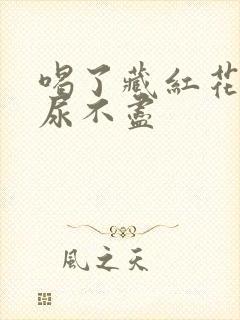 喝了藏紅花
尿不盡
風之天